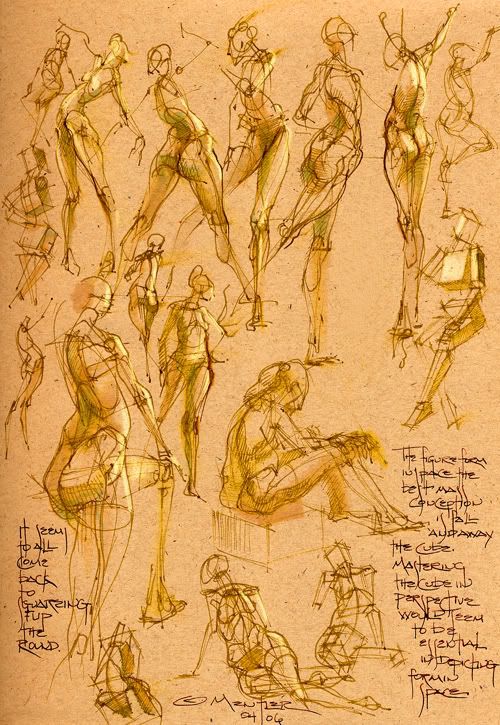 THE FIGURE FORM
IN SPACE THE
BEST MASS
CONCEPTION
IS ALL
AND AWAY
THE CUBE.
MASTERING
THE CUBE IN
PERSPECTIVE
WOULD SEEM
TO BE
ESSENTIAL
IN DEPICTING
FORM IN
SPACE
IT SEEMS
TO ALL
COME
BACK
TO
SQUARING
UP
THE
ROUND.
© MENTLER
04/06